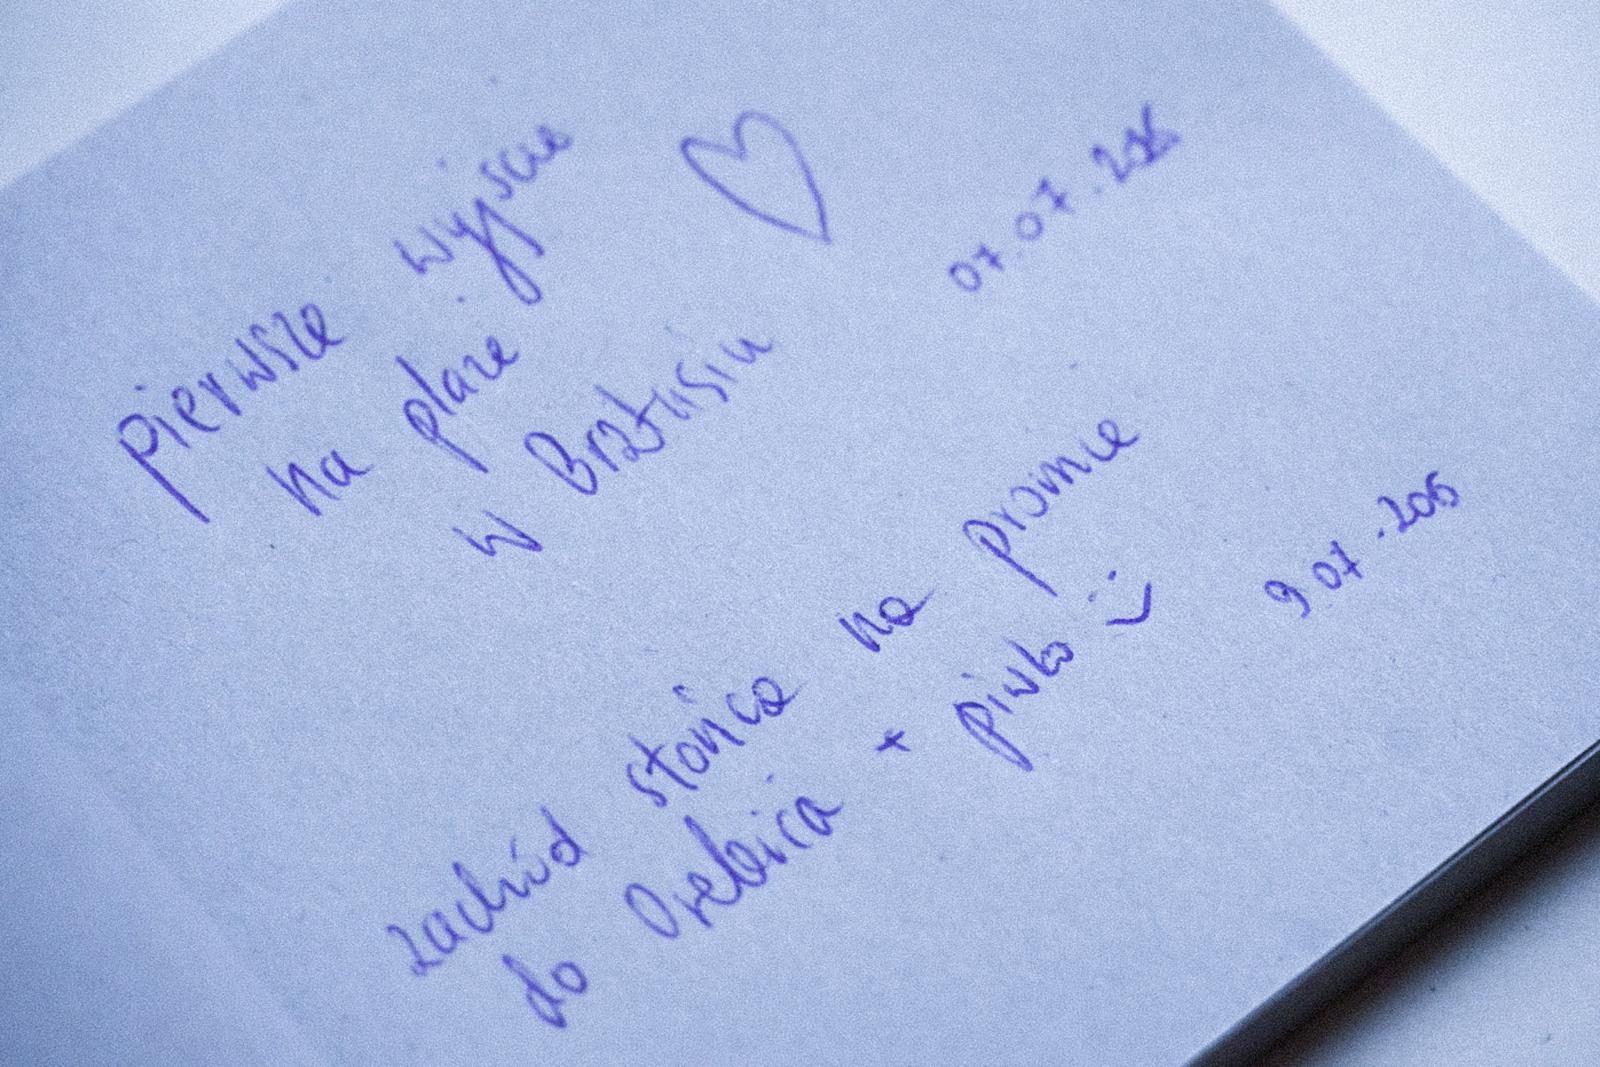 pierwsze wyjście
na plażę
w Brztusiu
07.07.2016
zachód słońca na promie
do Orebića + piwko :)
9.07.2016